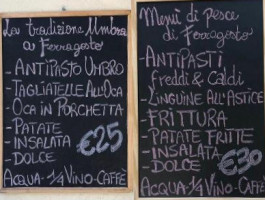 La tradizione Umbra
a Ferragosto
- ANTIPASTO UMBRO
- TAGLIATELLE ALL'OCA
- OCA IN PORCHETTA
- PATATE
- INSALATA
- DOLCE
€25
ACQUA - 1/4 VINO - CAFFÈ
Menù di pesce
di Ferragosto
- ANTIPASTI
freddi & Caldi
- LINGUINE ALL'ASTICE
- FRITTURA
- PATATE FRITTE
- INSALATA
- DOLCE
€30
ACQUA - 1/4 VINO - CAFFÈ